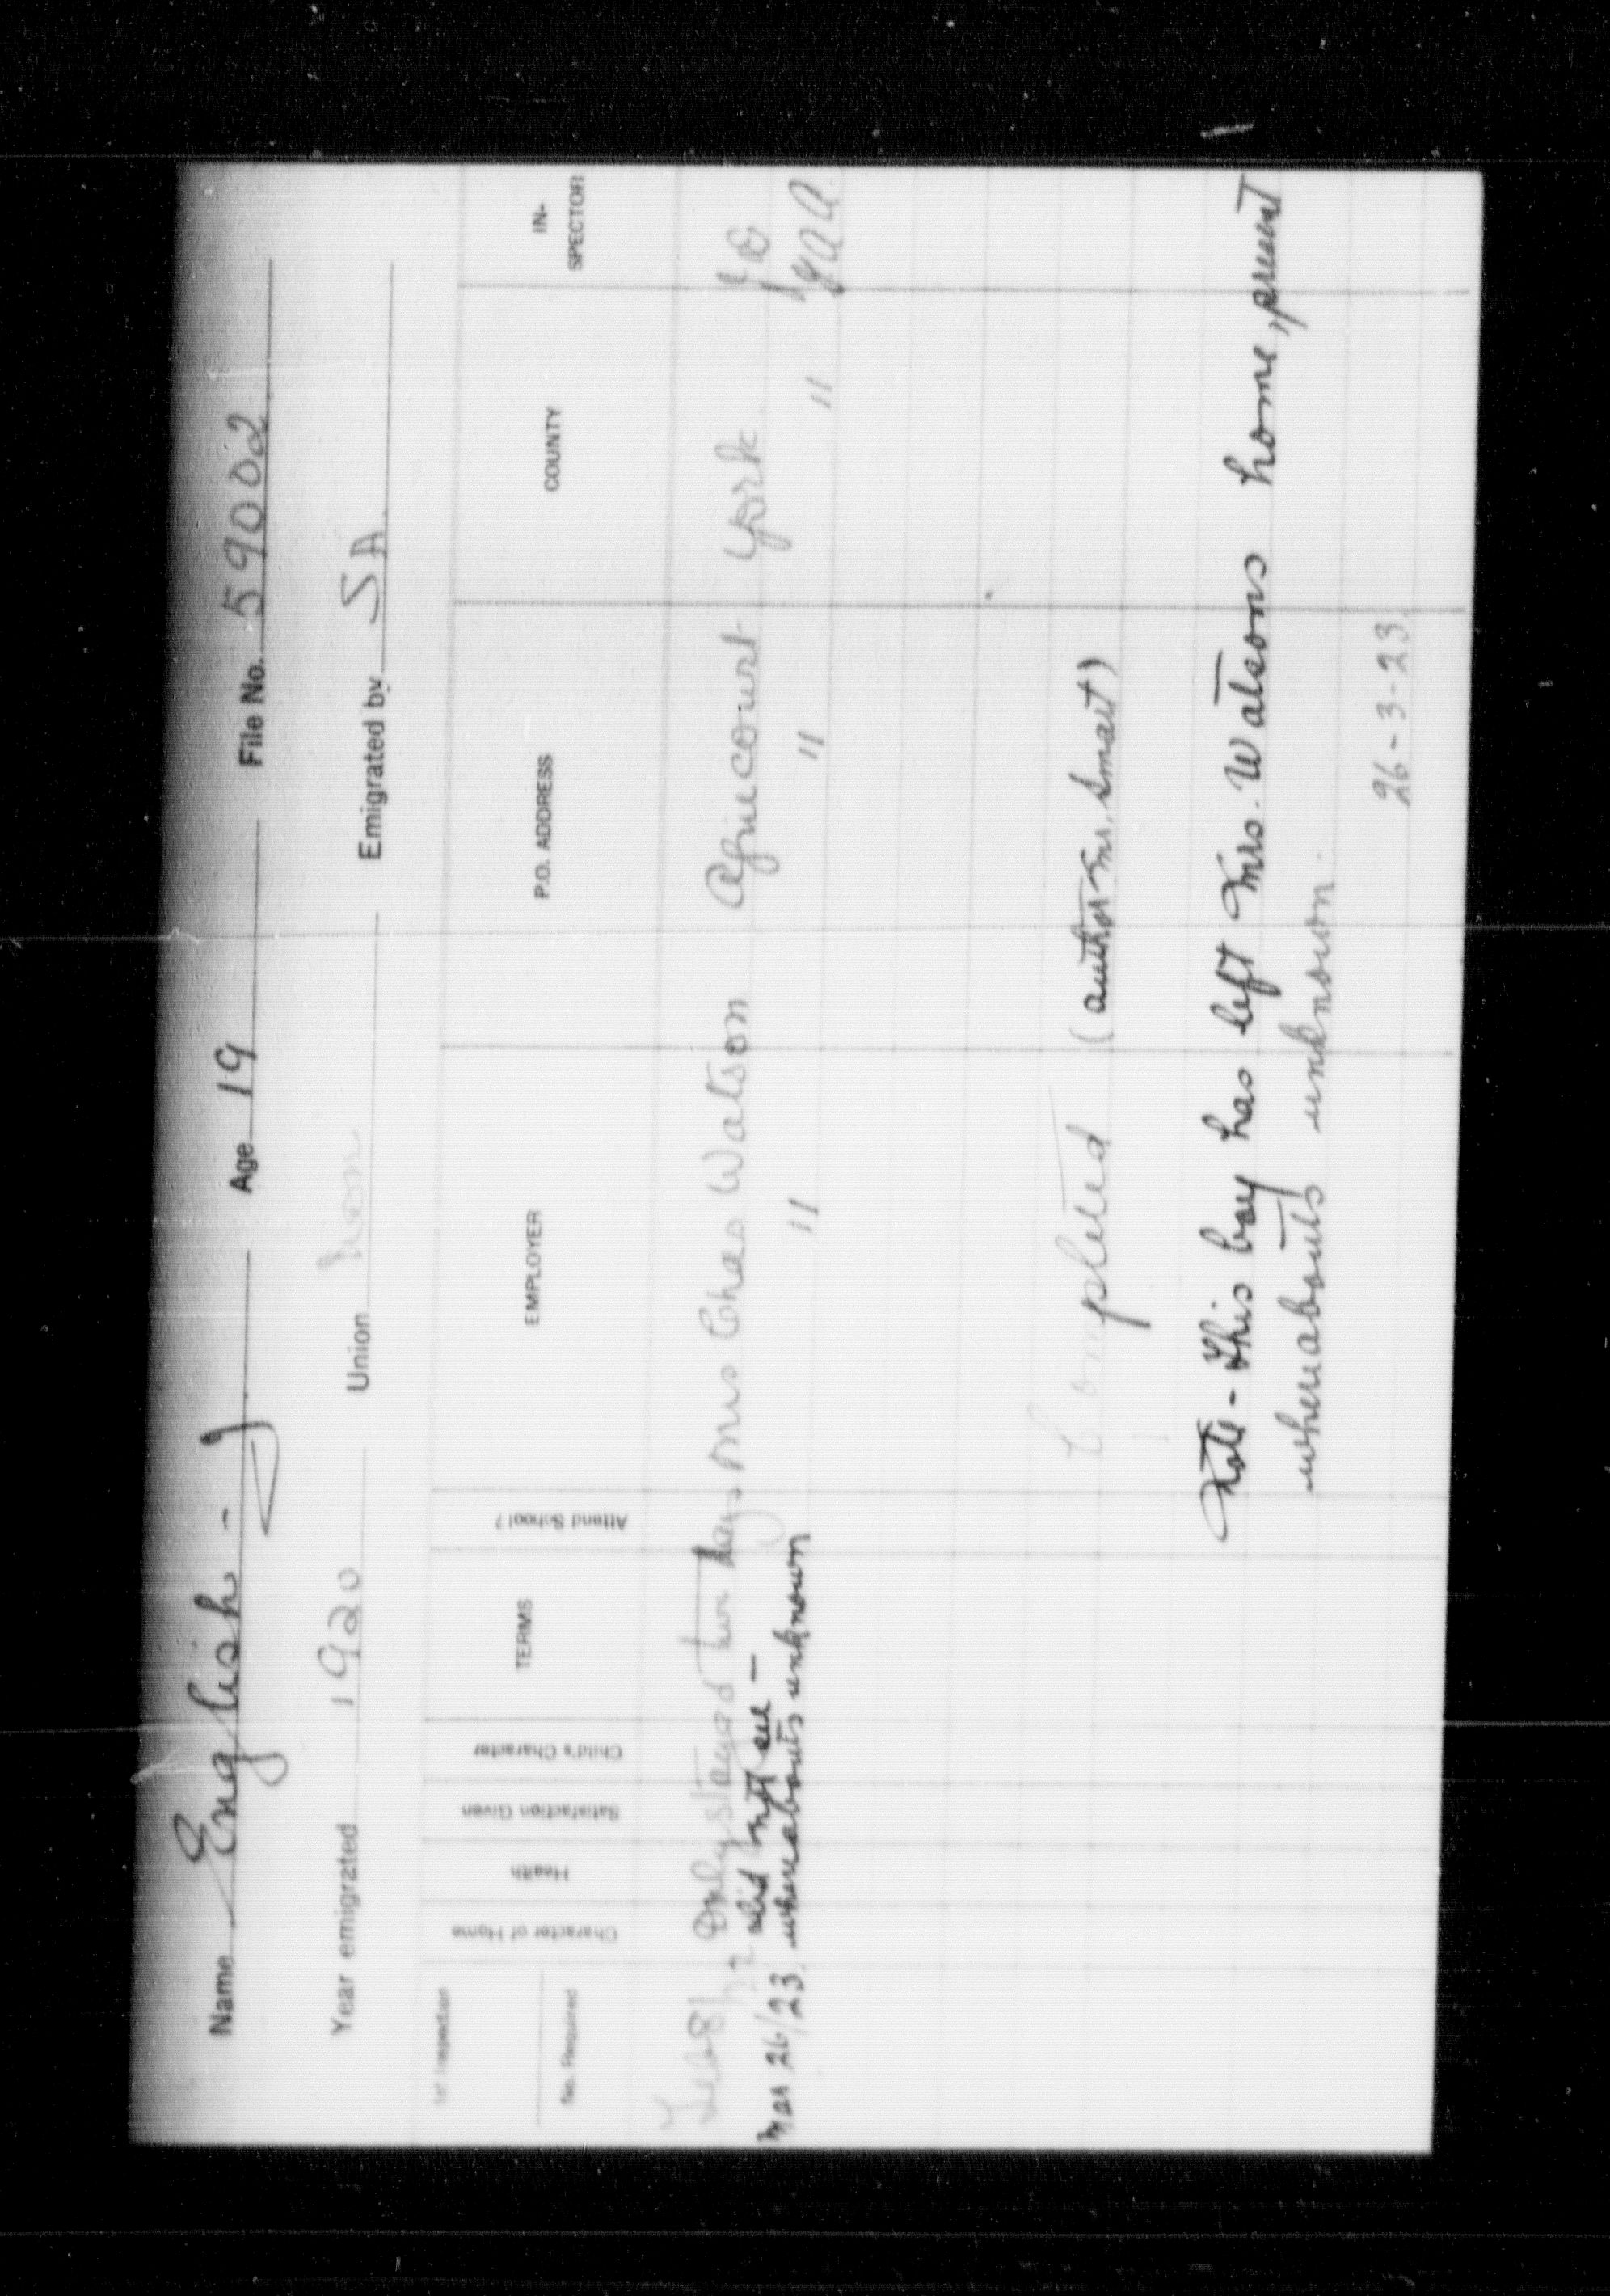 Name English - J. Age 19 File No. 59002
Year emigrated 1920 Union non Emigrated by S A.
1st Inspection
No. Required
Character of Home
Health
Satisfaction Given
Child's Character
TERMS
Attend School?
EMPLOYER
P.O. ADDRESS
COUNTY
IN-
SPECTOR
Feb 8/22 Only stayed two days Mrs Chas Watson Agincourt York
did not see —
Mar 26/23, whereabouts unknown " " "
Completed (author Mr. Smart)
Note - This boy has left Mrs. Watsons home, present
whereabouts unknown.
26-3-23.